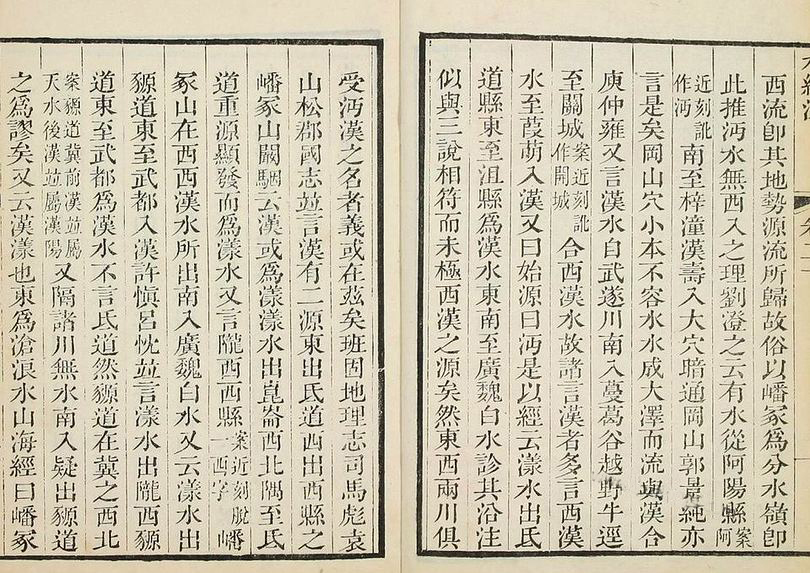 西流卽其地勢源流所歸故俗以嶓冢爲分水嶺卽
此推沔水無西入之理劉澄之云有水從阿陽縣案阿
近刻訛作沔南至梓潼漢壽入大穴暗通岡山郭景純亦
言是矣岡山穴小本不容水水成大澤而流與漢合
庾仲雍又言漢水自武遂川南入蔓葛谷越野牛逕
至關城案近刻訛作開城合西漢水故諸言漢者多言西漢
水至葭萌入漢又曰始源曰沔是以經云漾水出氐
道縣東至沮縣爲漢水東南至廣魏白水診其沿注
似與三說相符而未極西漢之源矣然東西兩川俱
受沔漢之名者義或在茲矣班固地理志司馬彪袁
山松郡國志竝言漢有二源東出氐道西出西縣之
嶓冢山闞駰云漢或爲漾漾水出崑崙西北隅至氐
道重源顯發而爲漾水又言隴西西縣案近刻脫一西字嶓
冢山在西西漢水所出南入廣魏白水又云漾水出
豲道東至武都入漢許愼呂忱竝言漾水出隴西豲
道東至武都爲漢水不言氐道然豲道在冀之西北
案豲道冀前漢竝屬天水後漢竝屬漢陽又隔諸川無水南入疑出豲道
之爲謬矣又云漢漾也東爲滄浪水山海經曰嶓冢